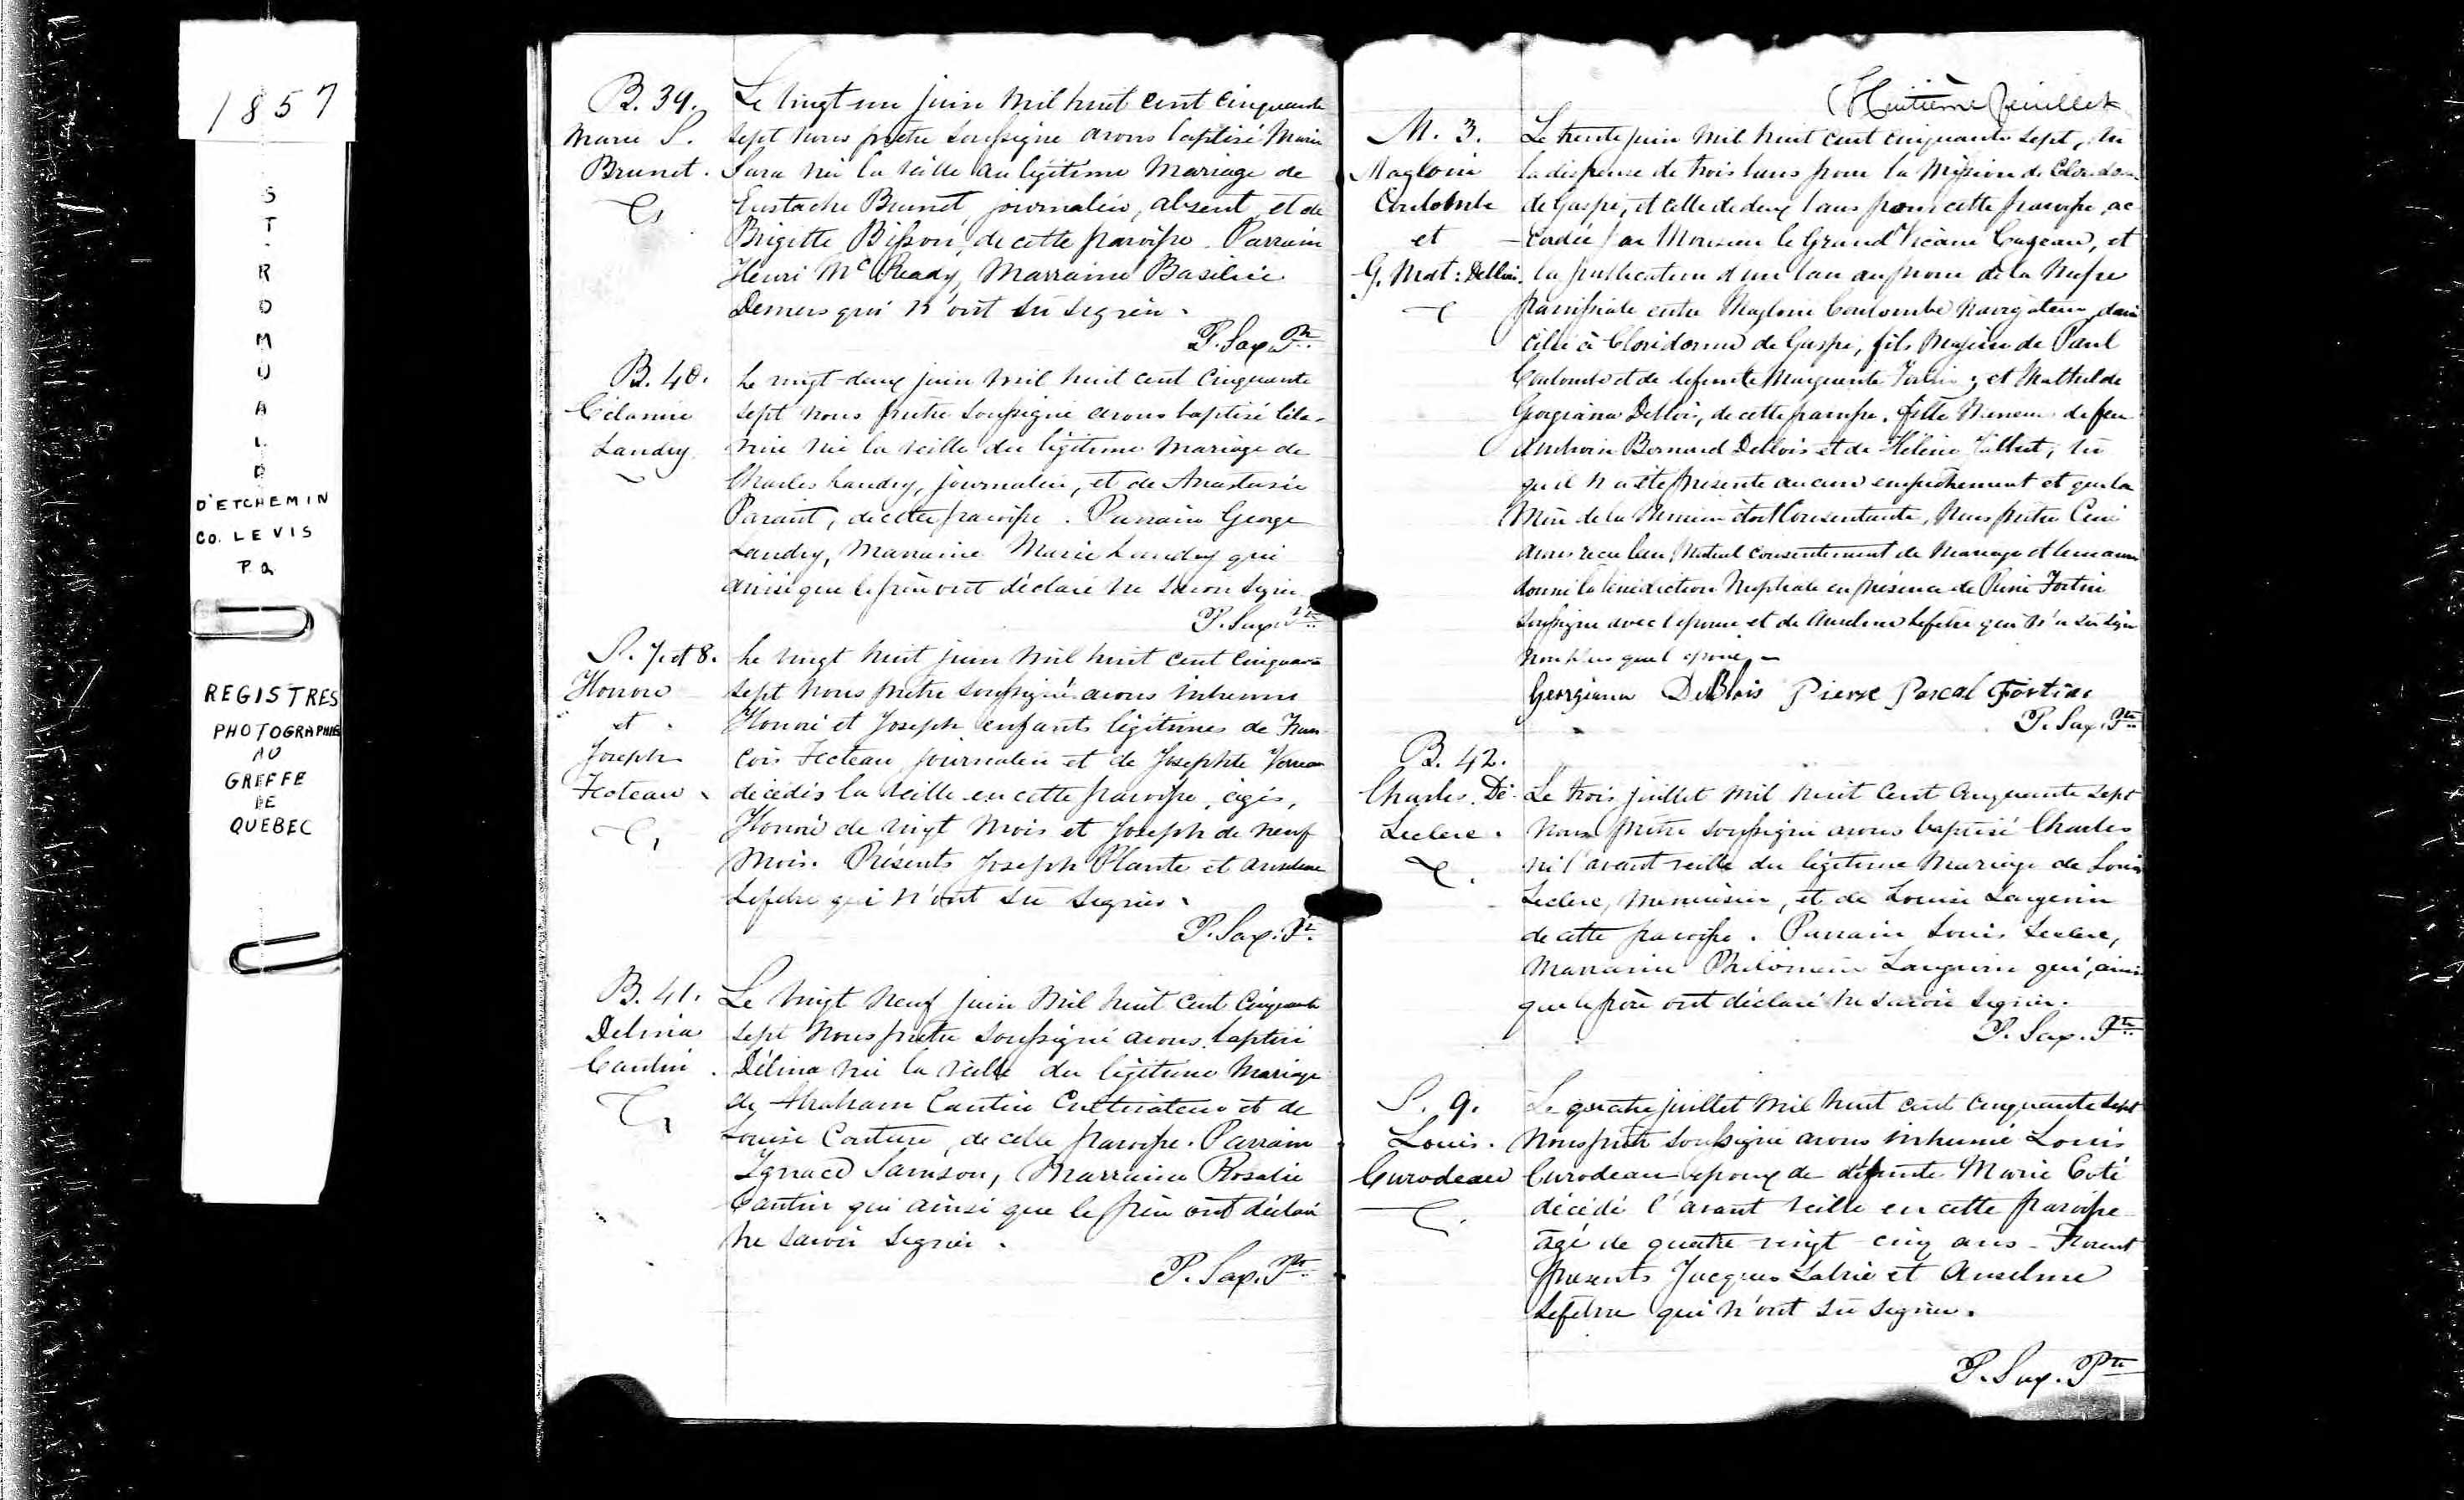 1857
ST-ROMUALD
D'ETCHEMIN
CO. LEVIS
P.Q
REGISTRES
PHOTOGRAPHIES
AU
GREFFE
DE
QUEBEC
B. 39.
Marie S.
Brunet.
Le vingt un juin mil huit cent cinquante
sept nous prêtre soussigné avons baptisé Marie
Sara née la veille du légitime mariage de
Eustache Brunet, journalier, absent et de
Brigitte Bisson, de cette paroisse. Parrain
Henri McCready, Marraine Basilice
Demers qui n'ont su signer.
P. Sax. Ptre
B. 40.
Célanire
Landry
Le vingt-deux juin mil huit cent cinquante
sept nous prêtre soussigné avons baptisé Céla-
nire née la veille du légitime mariage de
Charles Landry, journalier, et de Anastasie
Parant, de cette paroisse. Parrain George
Landry, Marraine Marie Landry qui
ainsi que le père ont déclaré ne savoir signer
P. Sax. Ptre
S. 7. et 8.
Honoré
et
Joseph
Fecteau
Le vingt huit juin mil huit cent cinquante
sept nous prêtre soussigné avons inhumé
Honoré et Joseph enfants légitimes de Fran
cois Fecteau journalier et de Josephte
décédés la veille en cette paroisse, agés,
Honoré de vingt mois et Joseph de neuf
mois. Présents Joseph Plante et Anselme
Lefebre qui n'ont su signer.
P. Sax. Ptre
B. 41.
Delina
Cantin
Le vingt neuf juin mil huit cent cinquante
sept nous prêtre soussigné avons baptisé
Délina née la veille du légitime mariage
de Abraham Cantin cultivateur et de
Louise Couture, de cette paroisse. Parrain
Ignace Samson, Marraine Rosalie
Cantin qui ainsi que le père ont déclaré
ne savoir signer.
P. Sax. Ptre
Huitième feuillet
M. 3.
Magloire
Coulombe
et
G. Mat: Deblois
Le trente juin mil huit cent cinquante sept, vu
la dispense de trois bans pour la Mission de Cloridorme
de Gaspé, et celle de deux bans pour cette paroisse, ac
cordée par Monsieur le Grand Vicaire Cazeau, et
la publication d'un ban au prone de la Messe
paroissiale entre Magloire Coulombe navigateur, domi
cilié à Cloridorme de Gaspé, fils majeur de Paul
Coulombe et de defunte Marguerite Fortin; et Mathilde
Georgiana Deblois, de cette paroisse, fille mineure de feu
Bernard Deblois et de Hélène; vu
qu'il n'a été présenté aucun empêchement et que la
Mère de la Mineure étoit consentante, Nous prêtre Curé
avons recu leur mutuel consentement de mariage et leur avons
donné la bénédiction nuptiale en présence de Pierre Fortin
soussigné avec l'epouse et de Anselme Lefebre qui n'a su signer
non plus que l'epoux
Georgiana DeBlois Pierre Pascal Fortin
P. Sax. Ptre
B. 42.
Charles. Dé
Leclerc.
Le trois juillet mil huit cent cinquante sept
nous prêtre soussigné avons baptisé Charles
né l'avant veille du légitime mariage de Louis
Leclerc, menuisier, et de Louise Langevin
de cette paroisse. Parrain Louis Leclerc,
Marraine Philomène Langevin qui, ainsi
que le père ont déclaré ne savoir signer.
P. Sax. Ptre
S. 9.
Louis.
Curodeau
Le quatre juillet mil huit cent cinquante sept
nous prêtre soussigné avons inhumé Louis
Curodeau epoux de défunte Marie Coté
décédé l'avant veille en cette paroisse
agé de quatre vingt cinq ans - Furent
présents Jacques Labrie et Anselme
Lefebre qui n'ont su signer.
P. Sax. Ptre